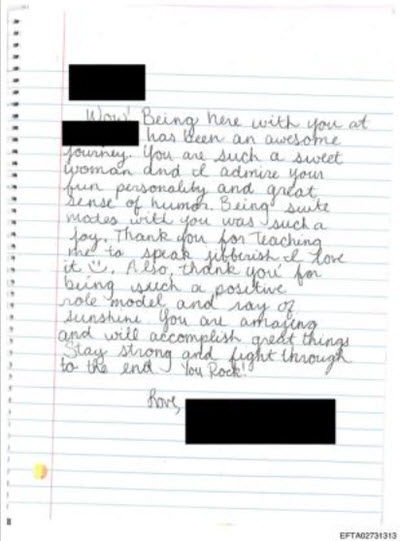 Wow! Being here with you at
has been an awesome
journey. You are such a sweet
woman and I admire your
fun personality and great
sense of humor. Being suite
mates with you was such a
joy. Thank you for Teaching
me to speak jibberish I love
it ☺. Also, thank you for
being such a positive
role model and ray of
sunshine. You are amazing
and will accomplish great things
Stay strong and fight through
to the end You Rock!
Love,
EFTA02731313